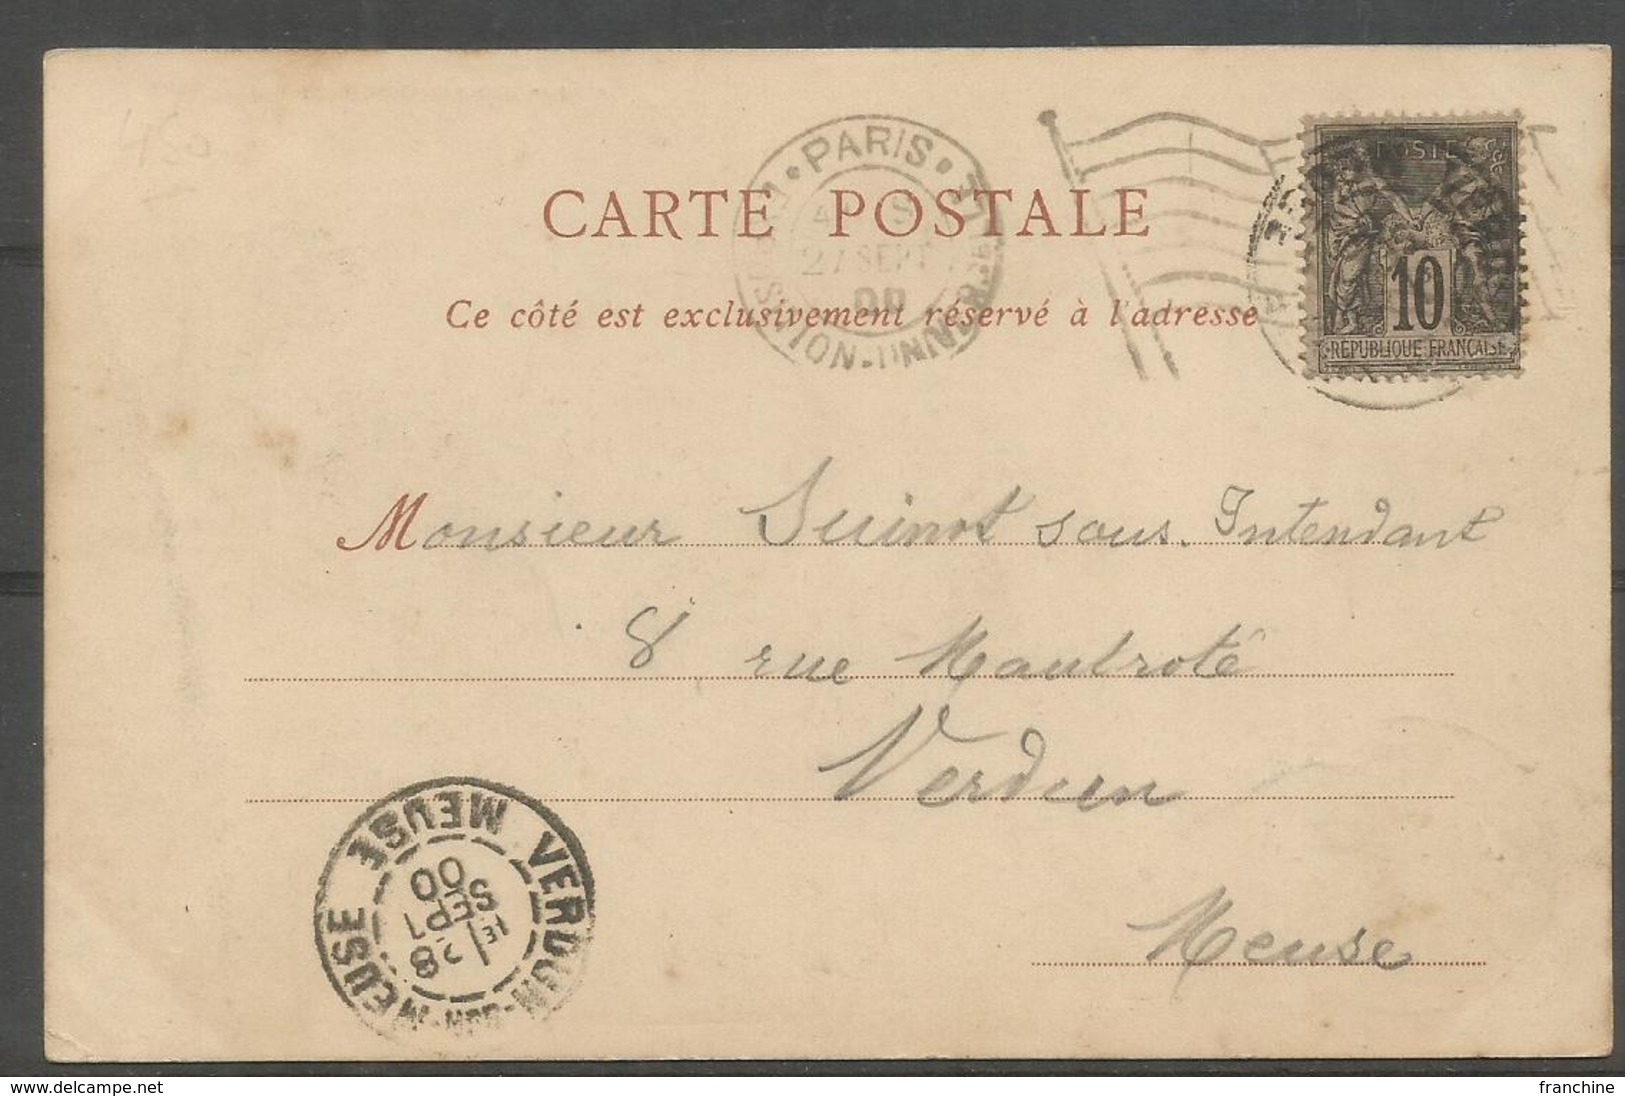 PARIS
EXPOSITION-UNIVERSELLE
27 SEPT
00
POSTE
10
REPUBLIQUE FRANÇAISE
CARTE POSTALE
Ce côté est exclusivement réservé à l'adresse
Monsieur Suinot sous. Intendant
8 rue Mautroté
Verdun
Meuse
VERDUN-SUR-MEUSE MEUSE
1E 28
SEPT
00
www.delcampe.net
franchine